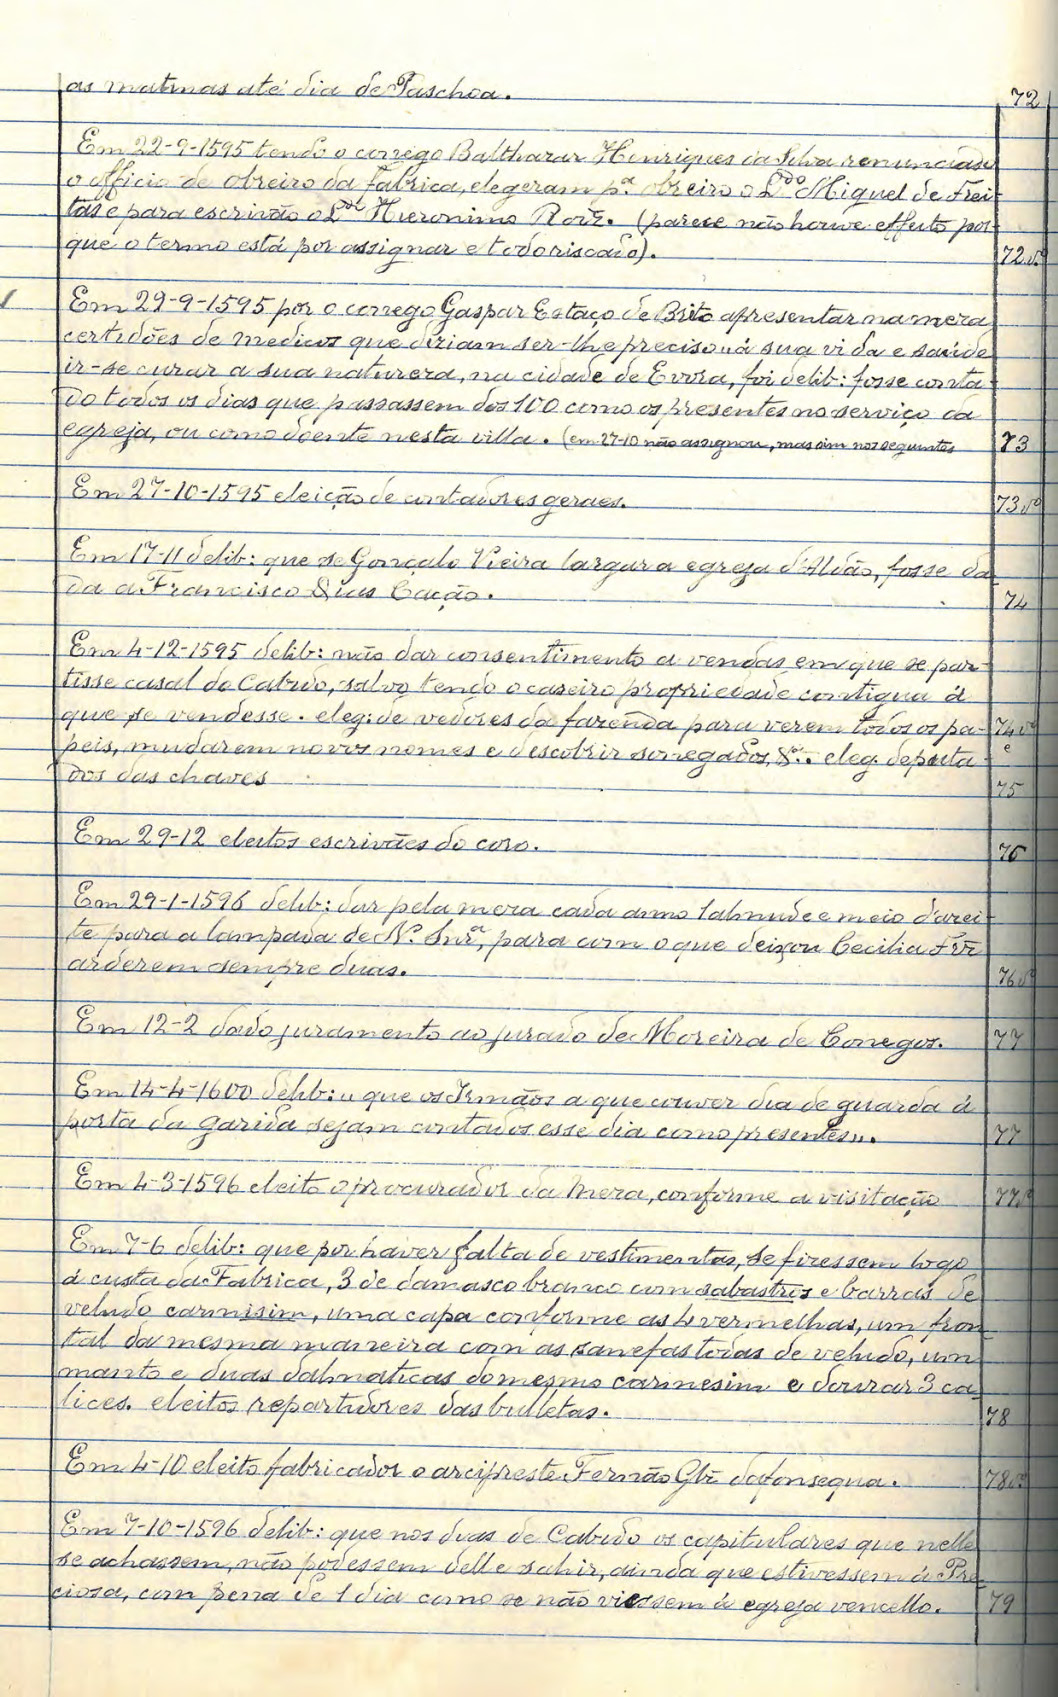 as matinas até dia de Paschoa. 72
Em 22-9-1595 tendo o conego Balthazar Henriques da Silva renunciado
o officio de obreiro da fabrica, elegeram p.ª obreiro o L.do Miguel de Frei-
tas e para escrivão o L.do Hieronimo Roiz. (parece não houve effeito por-
que o termo está por assignar e todo riscado). 72 vº
Em 29-9-1595 por o conego Gaspar Estaço de Brito apresentar na meza
certidões de medicos que diziam ser-lhe preciso "á sua vida e saúde
ir-se curar a sua natureza, na cidade de Evora, foi delib: fosse conta-
do todos os dias que passassem dos 100 como os presentes no serviço da
egreja, ou como doente nesta villa. (em 27-10 não assignou, mas sim nos seguintes 73
Em 27-10-1595 eleição de contadores geraes. 73 vº
Em 17-11 delib: que se Gonçalo Vieira largar a egreja d'Aldão, fosse da-
da a Francisco Dias Cação. 74
Em 4-12-1595 delib: não dar consentimento a vendas em que se par-
tisse casal do Cabido, salvo tendo o caseiro propriedade contigua á
que se vendesse. eleg: de vedores da fazenda para verem todos os pa- 74 vº
peis, mudarem novos nomes e descobrir sonegados, &.ª. eleg. deputa- e
dos das chaves 75
Em 29-12 eleitos escrivães do coro. 76
Em 29-1-1596 delib: dar pela meza cada anno 1 almude e meio d'azei-
te para a lampada de N. Snr.ª, para com o que deixou Cecilia Frz
arderem sempre duas. 76 vº
Em 12-2 dado juramento ao jurado de Moreira de Conegos. 77
Em 14-4-1600 delib: "que os Irmãos a que couver dia de guarda á
porta da garida sejam contados esse dia como presentes". 77
Em 4-3-1596 eleito o procurador da Meza, conforme a visitação 77 vº
Em 7-6 delib: que por haver falta de vestimentas, se fizessem logo
á custa da Fabrica, 3 de damasco branco com sabastros e barras de
veludo carmisim, uma capa conforme as 4 vermelhas, um fron-
tal da mesma maneira com as sanefas todas de veludo, um
manto e duas dalmaticas do mesmo carmesim e dourar 3 ca-
lices. eleitos repartidores das bulletas. 78
Em 4-10 eleito fabricador o arcipreste Fernão Glz dafonsequa. 78 vº
Em 7-10-1596 delib: que nos dias de Cabido os capitulares que nelle
se achassem, não podessem delle sahir, ainda que estivessem á Pre-
ciosa, com pena de 1 dia como se não viessem á egreja vencello. 79